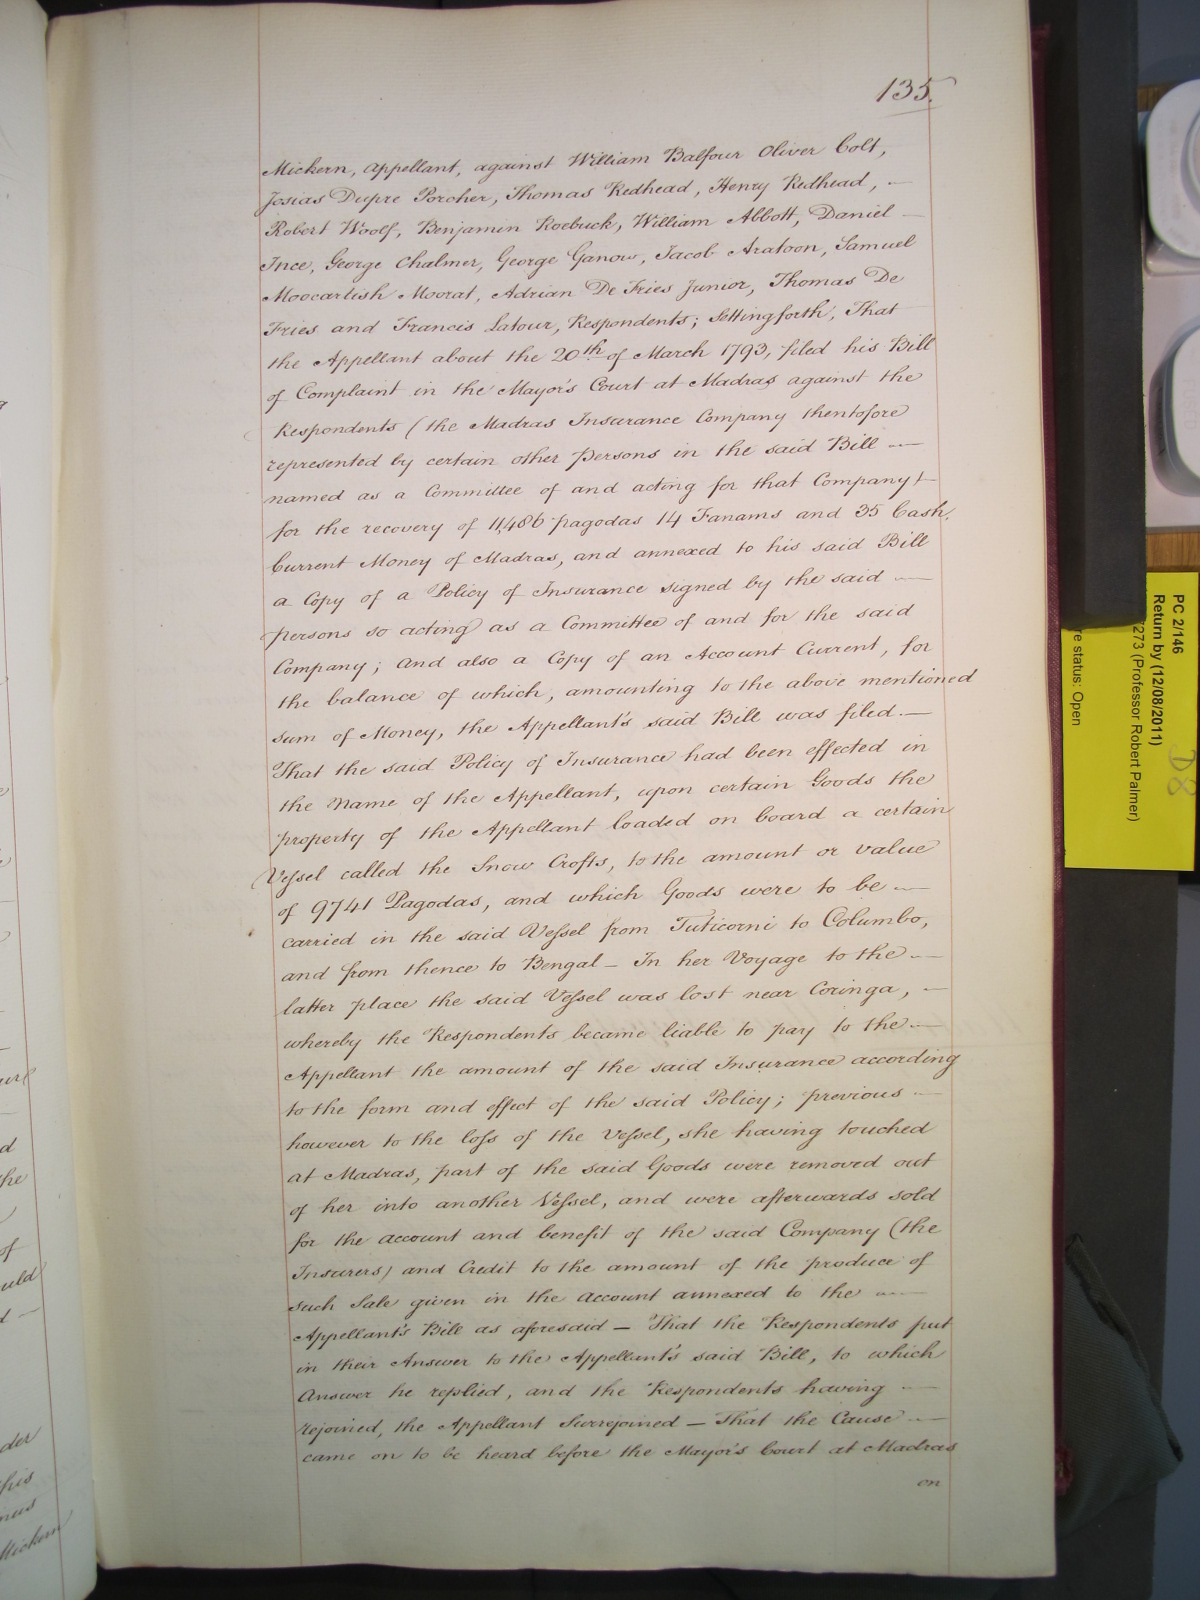 135.
Mickern, Appellant, against William Balfour Oliver Colt,
Josias Dupre Porcher, Thomas Redhead, Henry Redhead, —
Robert Woolf, Benjamin Roebuck, William Abbott, Daniel —
Ince, George Chalmer, George Ganow, Jacob Aratoon, Samuel
Moocartish Moorat, Adrian De Fries Junior, Thomas De
Fries and Francis Latour, Respondents; Settingforth, That
the Appellant about the 20th of March 1793, filed his Bill
of Complaint in the Mayor's Court at Madras against the
Respondents (the Madras Insurance Company thentofore
represented by certain other Persons in the said Bill —
named as a Committee of and acting for that Company) —
for the recovery of 11,486 pagodas 14 Fanams and 35 Cash,
Current Money of Madras, and annexed to his said Bill
a Copy of a Policy of Insurance signed by the said —
persons so acting as a Committee of and for the said
Company; and also a Copy of an Account Current, for
the balance of which, amounting to the above mentioned
sum of Money, the Appellant's said Bill was filed. —
That the said Policy of Insurance had been effected in
the Name of the Appellant, upon certain Goods the
property of the Appellant loaded on board a certain
Vessel called the Snow Crofts, to the amount or value
of 9741 Pagodas, and which Goods were to be —
carried in the said Vessel from Tuticorni to Columbo,
and from thence to Bengal — In her Voyage to the —
latter place the said Vessel was lost near Coringa, —
whereby the Respondents became liable to pay to the —
Appellant the amount of the said Insurance according
to the form and effect of the said Policy; previous —
however to the loss of the Vessel, she having touched
at Madras, part of the said Goods were removed out
of her into another Vessel, and were afterwards sold
for the account and benefit of the said Company (the
Insurers) and Credit to the amount of the produce of
such Sale given in the Account annexed to the —
Appellant's Bill as aforesaid — That the Respondents put
in their Answer to the Appellant's said Bill, to which
Answer he replied, and the Respondents having —
rejoined, the Appellant Surrejoined — That the Cause —
came on to be heard before the Mayor's Court at Madras
on
PC 2/146
Return by (12/08/2011)
273 (Professor Robert Palmer)
re status: Open
D8
der
his
Mickern